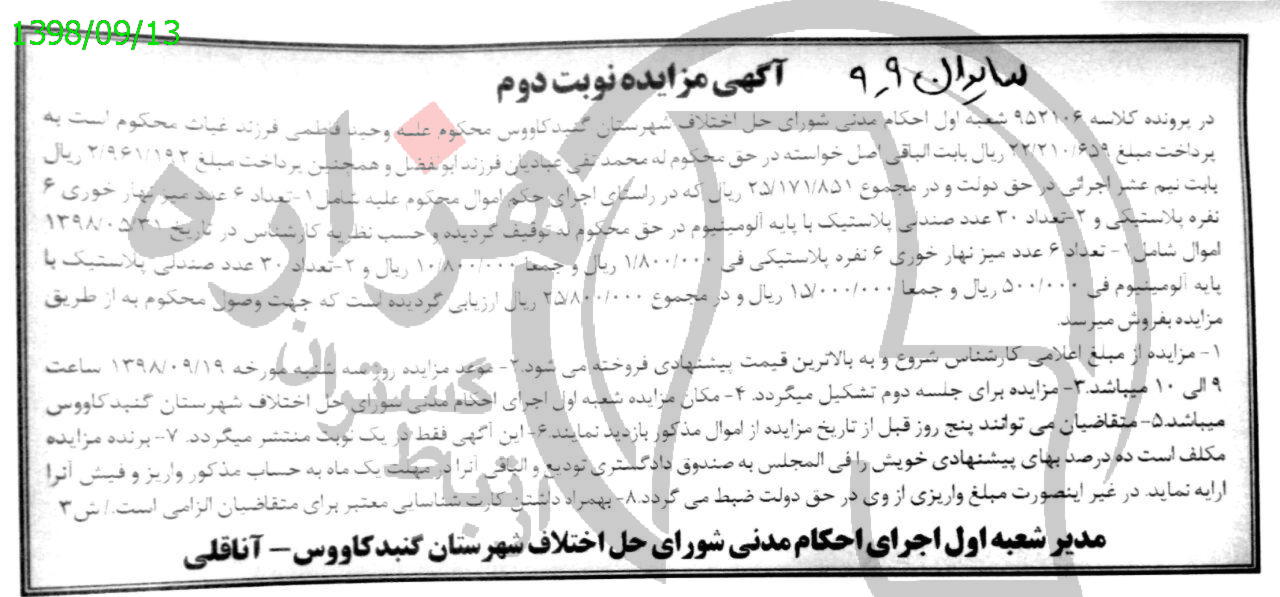 1398/09/13
آگهی مزایده نوبت دوم
در پرونده کلاسه ۹۵۲۱۰۶ شعبه اول احکام مدنی شورای حل اختلاف شهرستان گنبدکاووس محکوم علیه وحید فاطمی فرزند غیاث محکوم است به
پرداخت مبلغ ۲۲/۲۱۰/۶۵۹ ریال بابت الباقی اصل خواسته در حق محکوم له محمد تقی عبادیان فرزند ابوالفضل و همچنین پرداخت مبلغ ۲/۹۶۱/۱۹۲ ریال
بابت نیم عشر اجرائی در حق دولت و در مجموع ۲۵/۱۷۱/۸۵۱ ریال که در راستای اجرای حکم اموال محکوم علیه شامل ۱-تعداد ۶ عدد میز نهار خوری ۶
نفره پلاستیکی و ۲-تعداد ۳۰ عدد صندلی پلاستیک با پایه آلومینیوم در حق محکوم له توقیف گردیده و حسب نظریه کارشناس در تاریخ ۱۳۹۸/۰۵/۳۱
اموال شامل ۱- تعداد ۶ عدد میز نهار خوری ۶ نفره پلاستیکی فی ۱/۸۰۰/۰۰۰ ریال و جمعا ۱۰/۸۰۰/۰۰۰ ریال و ۲-تعداد ۳۰ عدد صندلی پلاستیک با
پایه آلومینیوم فی ۵۰۰/۰۰۰ ریال و جمعا ۱۵/۰۰۰/۰۰۰ ریال و در مجموع ۲۵/۸۰۰/۰۰۰ ریال ارزیابی گردیده است که جهت وصول محکوم به از طریق
مزایده بفروش میرسد.
۱- مزایده از مبلغ اعلامی کارشناس شروع و به بالاترین قیمت پیشنهادی فروخته می شود.۲- موعد مزایده روز سه شنبه مورخه ۱۳۹۸/۰۹/۱۹ ساعت
۹ الی ۱۰ میباشد.۳- مزایده برای جلسه دوم تشکیل میگردد. ۴- مکان مزایده شعبه اول اجرای احکام مدنی شورای حل اختلاف شهرستان گنبدکاووس
میباشد.۵- متقاضیان می توانند پنج روز قبل از تاریخ مزایده از اموال مذکور بازدید نمایند.۶- این آگهی فقط در یک نوبت منتشر میگردد. ۷- برنده مزایده
مکلف است ده درصد بهای پیشنهادی خویش را فی المجلس به صندوق دادگستری تودیع و الباقی آنرا در مهلت یک ماه به حساب مذکور واریز و فیش آنرا
ارایه نماید. در غیر اینصورت مبلغ واریزی از وی در حق دولت ضبط می گردد.۸- بهمراه داشتن کارت شناسایی معتبر برای متقاضیان الزامی است./ ش۳
مدیر شعبه اول اجرای احکام مدنی شورای حل اختلاف شهرستان گنبدکاووس– آناقلی
هزاره
گستران
ارتباط